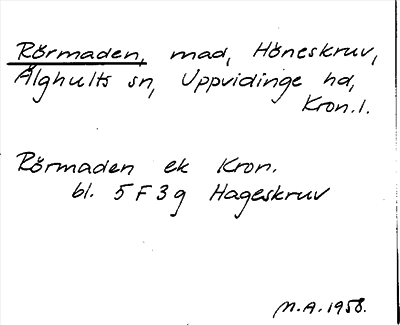 Rörmaden, mad, Höneskruv,
Älghults sn, Uppvidinge hd,
Kron.l.
Rörmaden ek Kron.
bl. 5 F 3 g Hageskruv
M.A. 1958.